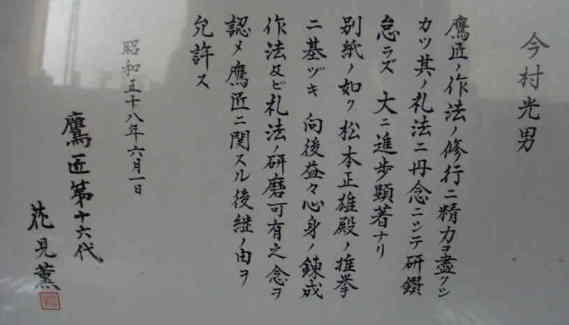 今村光男
鷹匠ノ作法ノ修行ニ精力ヲ盡クシ
カツ其ノ礼法ニ丹念ニシテ研鑽
怠ラズ 大ニ進歩顕著ナリ
別紙ノ如ク松本正雄殿ノ推挙
ニ基ヅキ 向後益々心身ノ錬成
作法及ビ礼法ノ研磨可有之念ヲ
認メ鷹匠ニ関スル後継ノ由ヲ
允許ス
昭和五十八年六月一日
鷹匠第十六代
花見薫